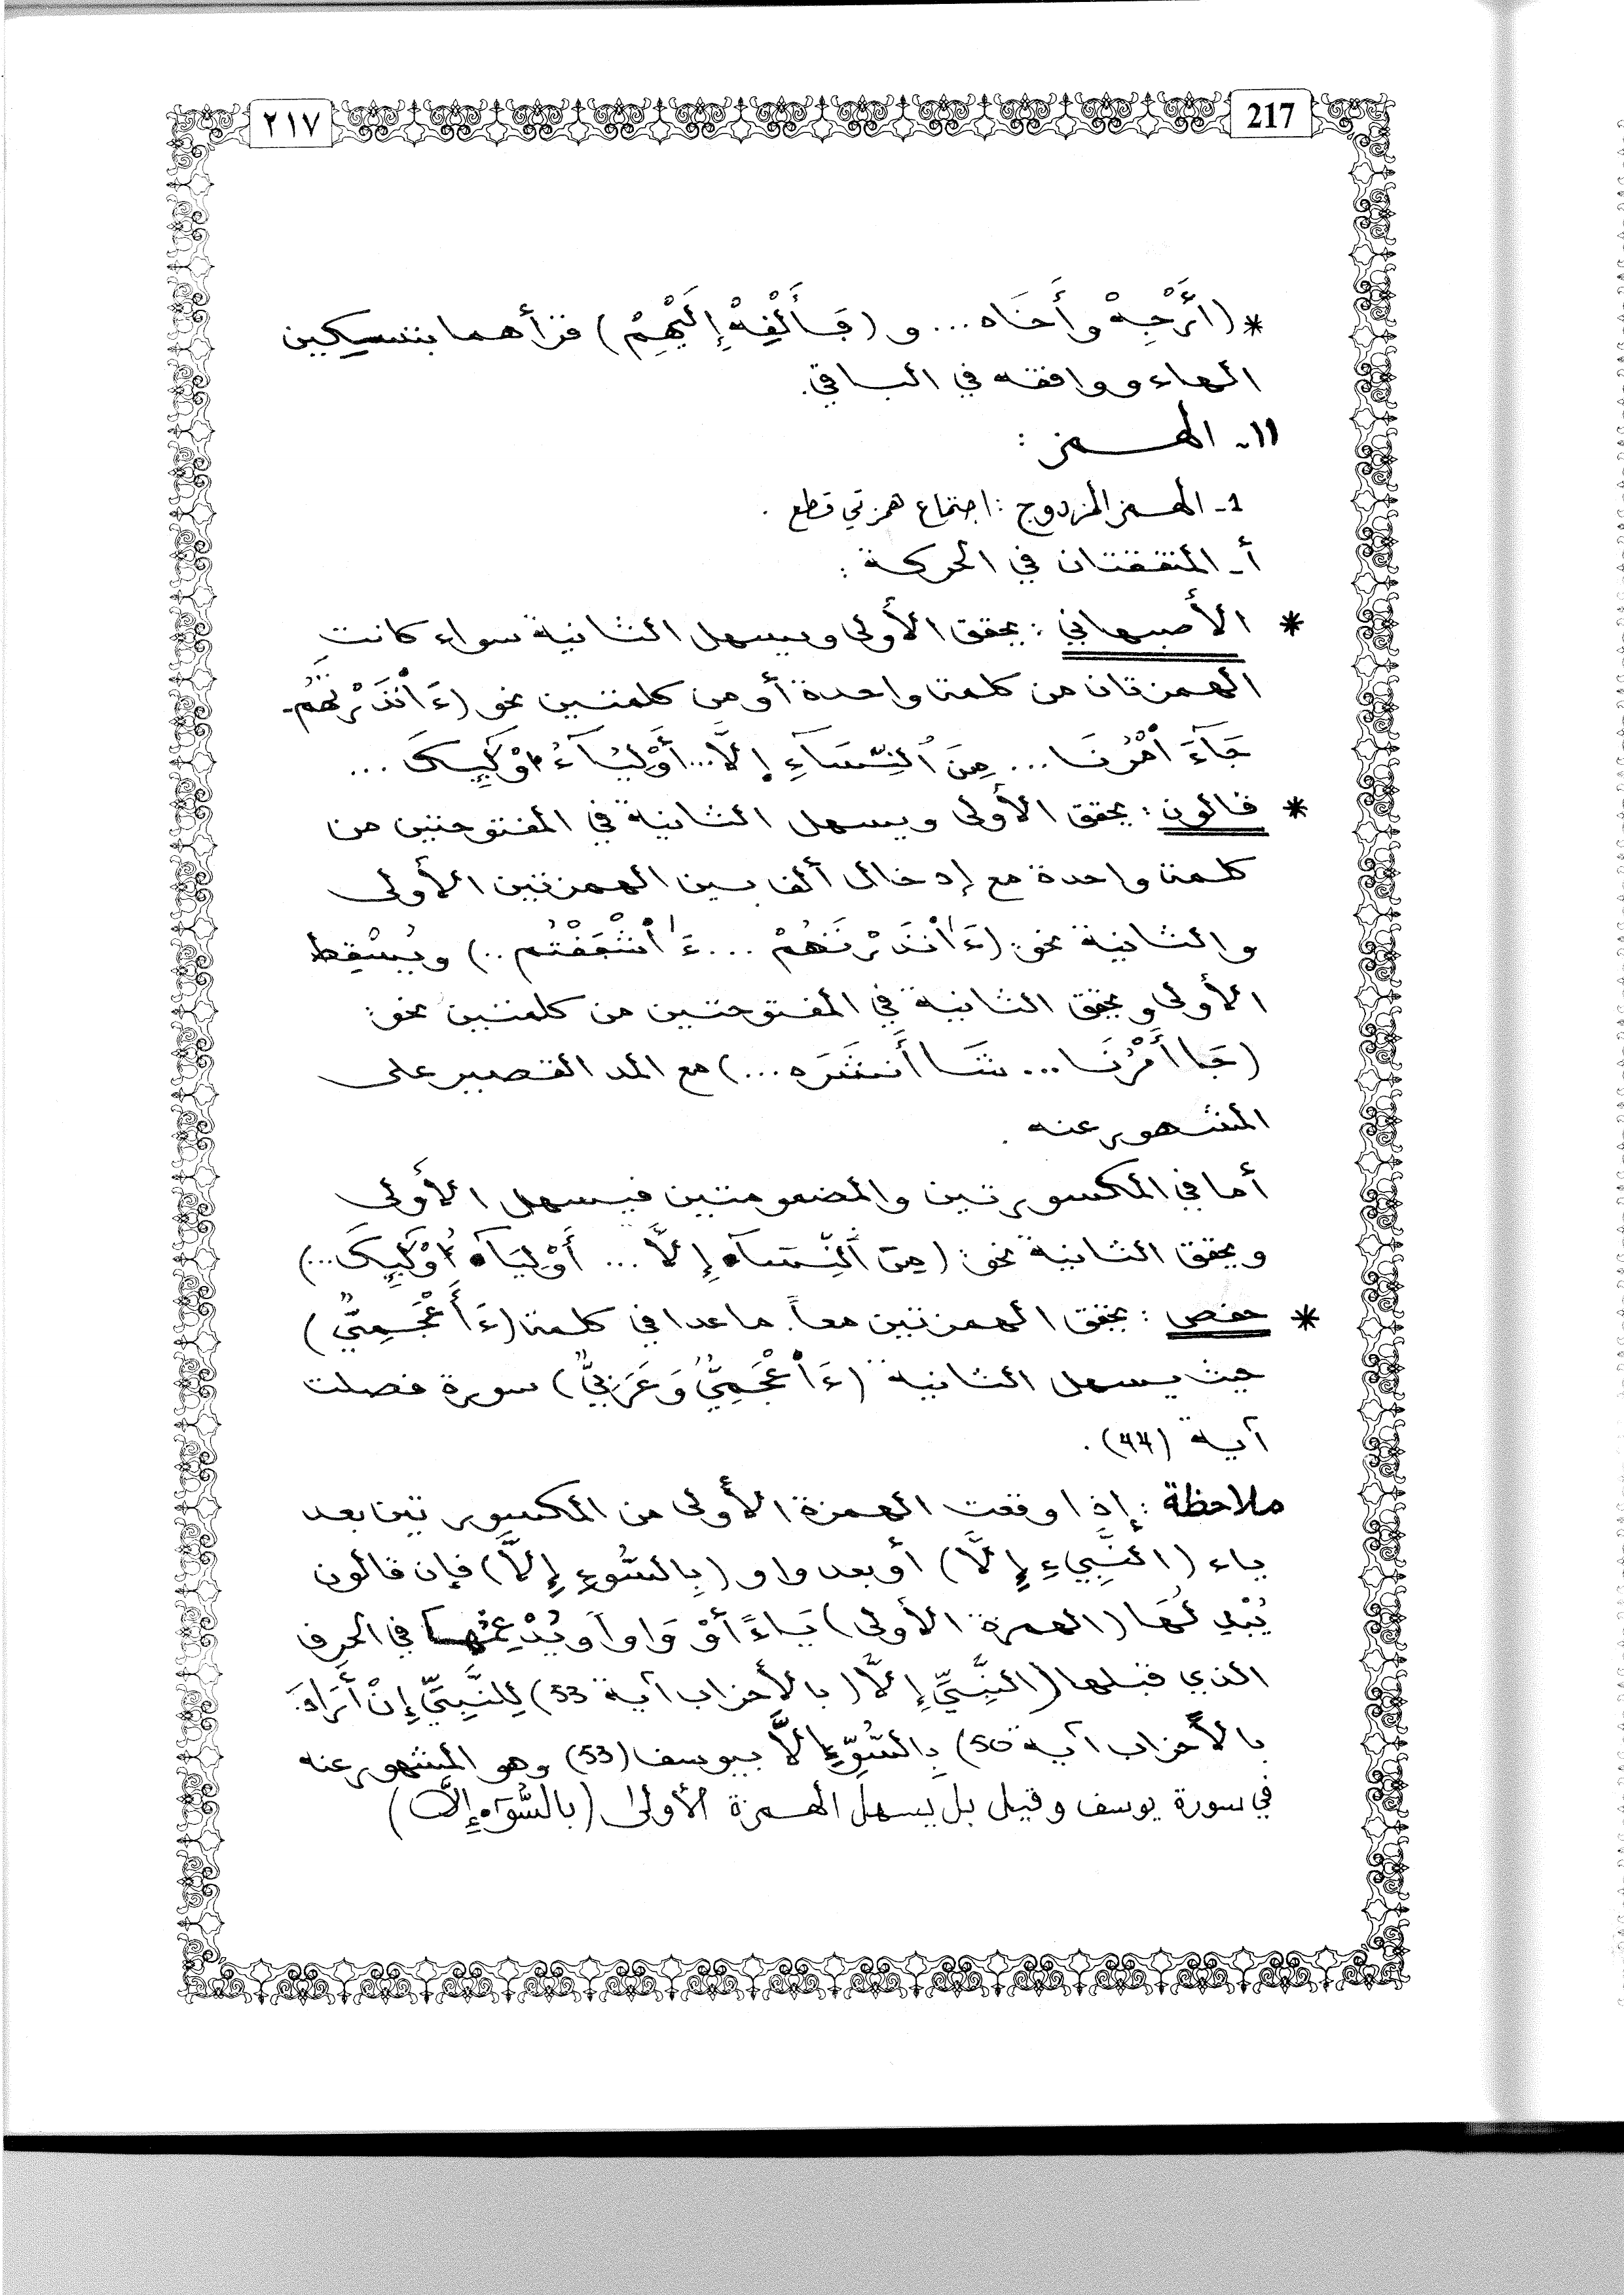 ٢١٧
217
* (أَرْجِهْ وأَخَاه... و (فَأَلْقِهْ إِلَيْهِمْ) قرأهما بتسكين
الهاء ووافقه في الباقي.
١١- الهمز :
1- الهمز المزدوج : اجتماع همزتي قطع .
أ- المتفقتان في الحركة :
* الأصبهاني : يحقق الأولى ويسهل الثانية سواء كانت
الهمزتان من كلمة واحدة أو من كلمتين نحو (ءَاٰنذَرْتَهُم-
جَآءَ اٰمْرُنَا ... مِنَ اَلنِّسَآءِ اِلَّا... أَوْلِيَآءُ اوْلَٰٓئِكَ ...
* قالون : يحقق الأولى ويسهل الثانية في المفتوحتين من
كلمة واحدة مع إدخال ألف بين الهمزتين الأولى
والثانية نحو: (ءَاٰنذَرْتَهُمْ ... ءَاٰشْفَقْتُم ..) ويُسْقِط
الأولى ويحقق الثانية في المفتوحتين من كلمتين نحو:
(جَا أَمْرُنَا ... شَا أَنشَرَه ...) مع المد القصير على
المشهور عنه .
أما في المكسورتين والمضمومتين فيسهل الأولى
ويحقق الثانية نحو: (مِنَ اَلنِّسَآهِ إِلَّا ... أَوْلِيَآهُ أُوْلَٰٓئِكَ ...)
* حفص : يحقق الهمزتين معاً. ماعدا في كلمة (ءَأَعْجَمِيٌّ)
حيث يسهل الثانية (ءَاٰعْجَمِيٌّ وَعَرَبِيٌّ) سورة فصلت
آية (44) .
ملاحظة : إذا وقعت الهمزة الأولى من المكسورتين بعد
ياء (النَّبِيءِ إِلَّا) أو بعد واو (بِالسُّوءِ إِلَّا) فإن قالون
يُبْدِلُهَا (الهمزة الأولى) يَاءً أوْ وَاواً ويُدْغِمُهَا في الحرف
الذي قبلها (النَّبِيِّ إِلَّا (بالأحزاب آية 53) لِلنَّبِيِّ إِنْ أَرَادَ
بالأحزاب آية 50) بِالسُّوِّ إِلَّا بيوسف (53) وهو المشهور عنه
في سورة يوسف وقيل بل يسهل الهمزة الأولى (بالسُّوَٓهِ إِلَّا)